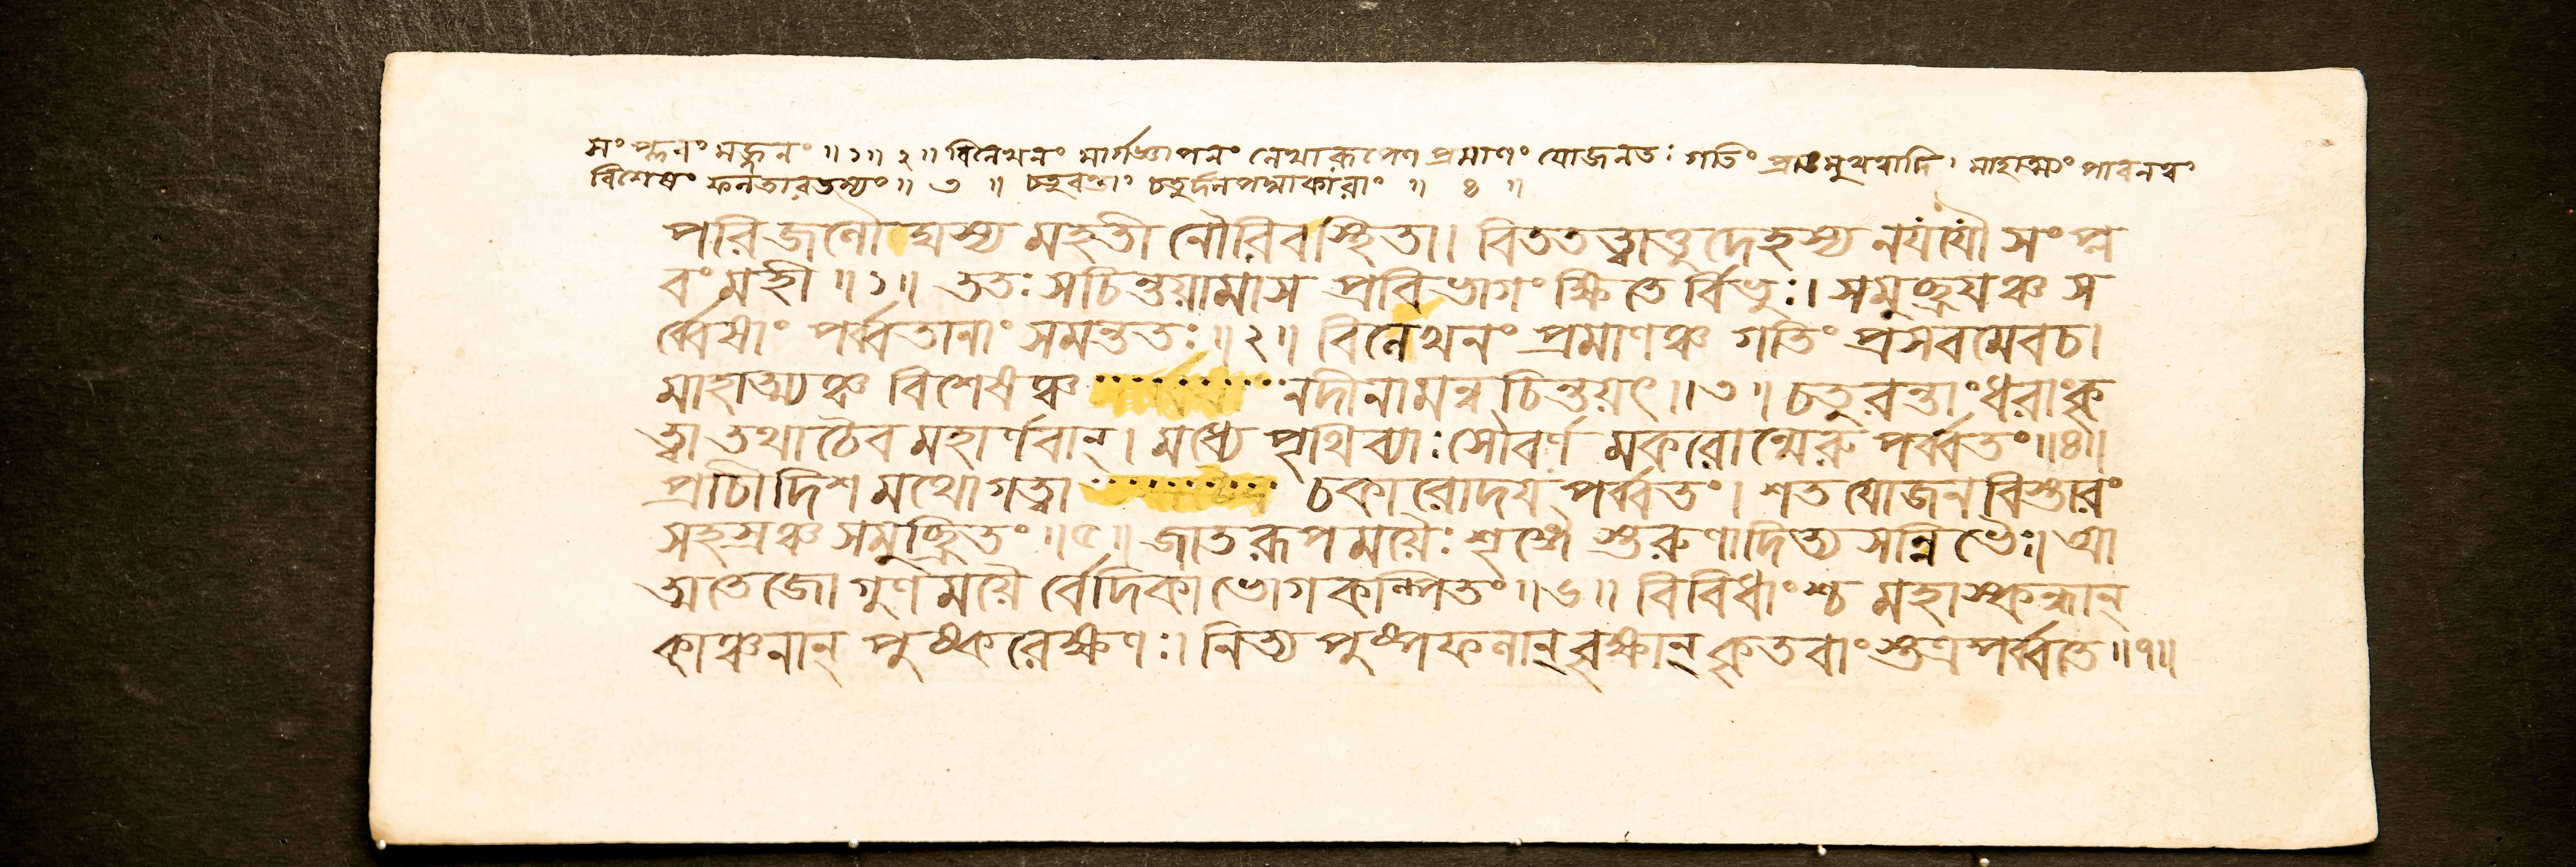 সংপ্লবং মজ্জনং ॥ ১॥ ২॥ বিলেখনং মার্গজ্ঞাপনং লেখারূপেণ প্রমাণং যোজনতঃ গতিং প্রাঙমুখত্বাদি। মাহাত্ম্যং পাবনত্বং
বিশেষং ফলতারতম্যং॥ ৩ ॥ চতুরন্তাং চতুর্দলপদ্মাকারাং ॥ ৪ ॥
পরিজলৌঘস্য মহতী নৌরিব স্থিতা। বিততত্ত্বাত্তু দেহস্য ন যযৌ সংপ্ল
বং মহী ॥১॥ ততঃ স চিন্তয়ামাস প্রবিভাগং ক্ষিতে র্বিভুঃ। সমুচ্ছ্রয়ঞ্চ স
র্ব্বেষাং পর্ব্বতানাং সমন্ততঃ ॥২॥ বিলেখনং প্রমাণঞ্চ গতিং প্রসবমেবচ।
মাহাত্ম্যঞ্চ বিশেষঞ্চ নদীনামন্বচিন্তয়ৎ॥৩॥ চতুরন্তাং ধরাং কৃ
ত্বা তথা চৈব মহার্ণবান্। মধ্যে পৃথিব্যাঃ সৌবর্ণ মকরোন্মেরু পর্ব্বতং॥৪॥
প্রাচীং দিশ মথো গত্বা চকারোদয় পর্ব্বতং। শতযোজনবিস্তারং
সহস্রঞ্চ সমুচ্ছ্রিতং ॥৫॥ জাতরূপময়ৈঃ শৃঙ্গৈ স্তরুণাদিত্য সন্নিভৈঃ। আ
ত্মতেজো গুণময়ৈ র্বেদিকা ভোগকল্পিতং ॥৬॥ বিবিধাংশ্চ মহাস্কন্ধান্
কাঞ্চনান্ পুষ্করেক্ষণঃ। নিত্য পুষ্পফলান্ বৃক্ষান্ কৃতবাংস্তত্র পর্ব্বতে ॥৭॥